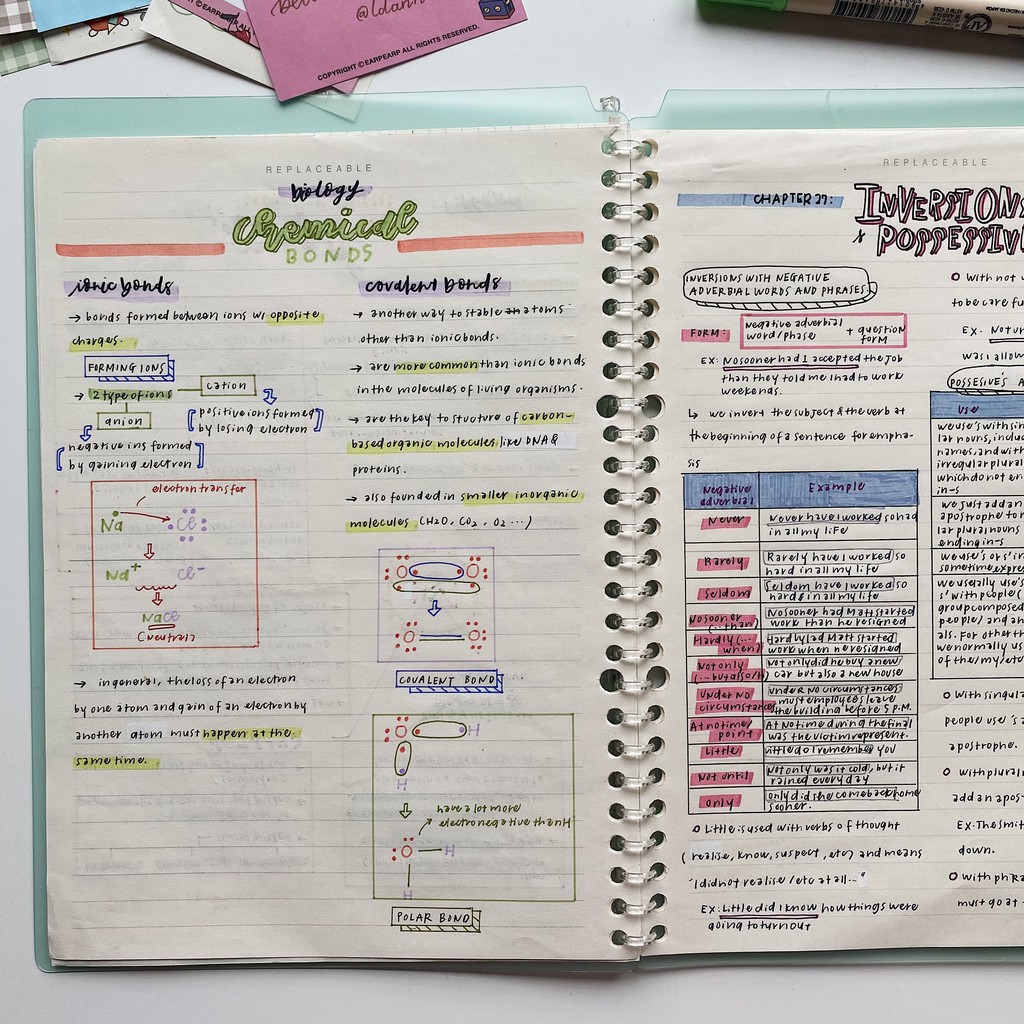 @ldann
COPYRIGHT © EARPEARP ALL RIGHTS RESERVED.
REPLACEABLE
biology
chemical
BONDS
ionic bonds
→ bonds formed between ions w/ opposite
charges.
FORMING IONS
→ 2 type of ions
cation
anion
[positive ions formed
by losing electron]
[negative ins formed
by gaining electron]
electron transfer
Na
Cl
Na+
Cl-
NaCl
(neutral)
→ in general, the loss of an electron
by one atom and gain of an electron by
another atom must happen at the
same time.
covalent bonds
→ another way to stable atoms
other than ionic bonds.
→ are more common than ionic bonds
in the molecules of living organisms.
→ are the key to stucture of carbon-
based organic molecules like DNA &
proteins.
→ also founded in smaller inorganic
molecules (H2O, CO2, O2 ...)
O O
O O
COVALENT BOND
O H
H
have a lot more
electronegative than H
O H
H
POLAR BOND
REPLACEABLE
CHAPTER 27:
INVERSIONS
& POSSESSIV
INVERSIONS WITH NEGATIVE
ADVERBIAL WORDS AND PHRASES
FORM:
negative adverbial
word/phase
+ question
form
EX: No sooner had I accepted the job
than they told me I had to work
weekends.
↳ we invert the subject & the verb at
the beginning of a sentence for empha-
sis
Negative
adverbial
Example
Never
Never have I worked so had
in all my life
Rarely
Rarely have I worked so
hard in all my life
Seldom
Seldom have I worked so
hard in all my life
No sooner
(... than)
No sooner had Matt started
work than he resigned
Hardly (...
when)
Hardly had Matt started
work when he resigned
Not only
(... but also/)
Not only did he buy a new
car but also a new house
Under no
circumstances
under no circumstances
must employees leave
the building before 5 P.M.
At no time/
point
At no time during the final
was the victim present.
Little
Little do I remember you
Not until
Not only was it cold, but it
rained every day
only
only did she come back home
sooner.
o Little is used with verbs of thought
(realise, know, suspect, etc) and means
"I did not realise / etc at all..."
EX: Little did I know how things were
going to turn out
o With not
to be care fu
EX. Not
was I allow
POSSESIVE'S A
Use
we use 's with sin
lar nouns, inclu
names, and with
irregular plural
which do not en
in -s
we just add an
apostrophe to r
lar plural nouns
ending in -s
we use 's or s' in
sometime expres
we usually use 's
s' with people (
group composed
people) and an
als. For other th
we normally us
of the/my/etc
o With singul
people use 's
apostrophe.
o With plural
add an apos-
EX. The Smit
down.
o With phra
must go at